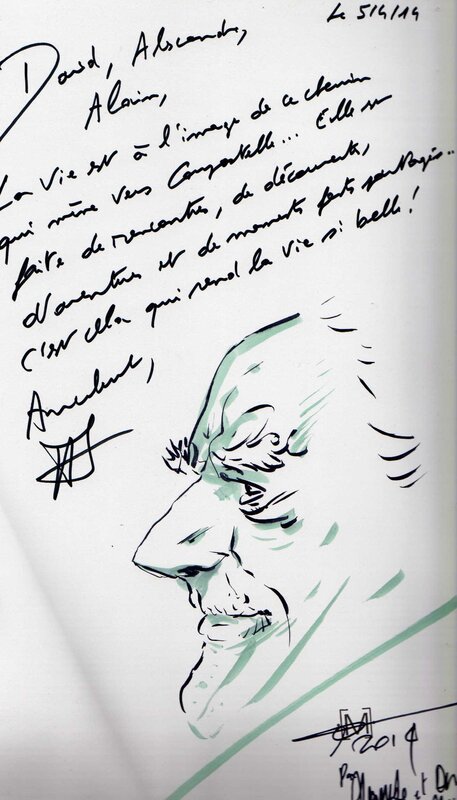 Le 5/4/14
David, Alexandre,
Alain,
La vie est à l'image de ce chemin
qui mène vers Compostelle... Elle est
faite de rencontres, de découvertes,
d'aventures et de moments forts partagés...
c'est cela qui rend la vie si belle!
Amicalement,
2014
Pour et